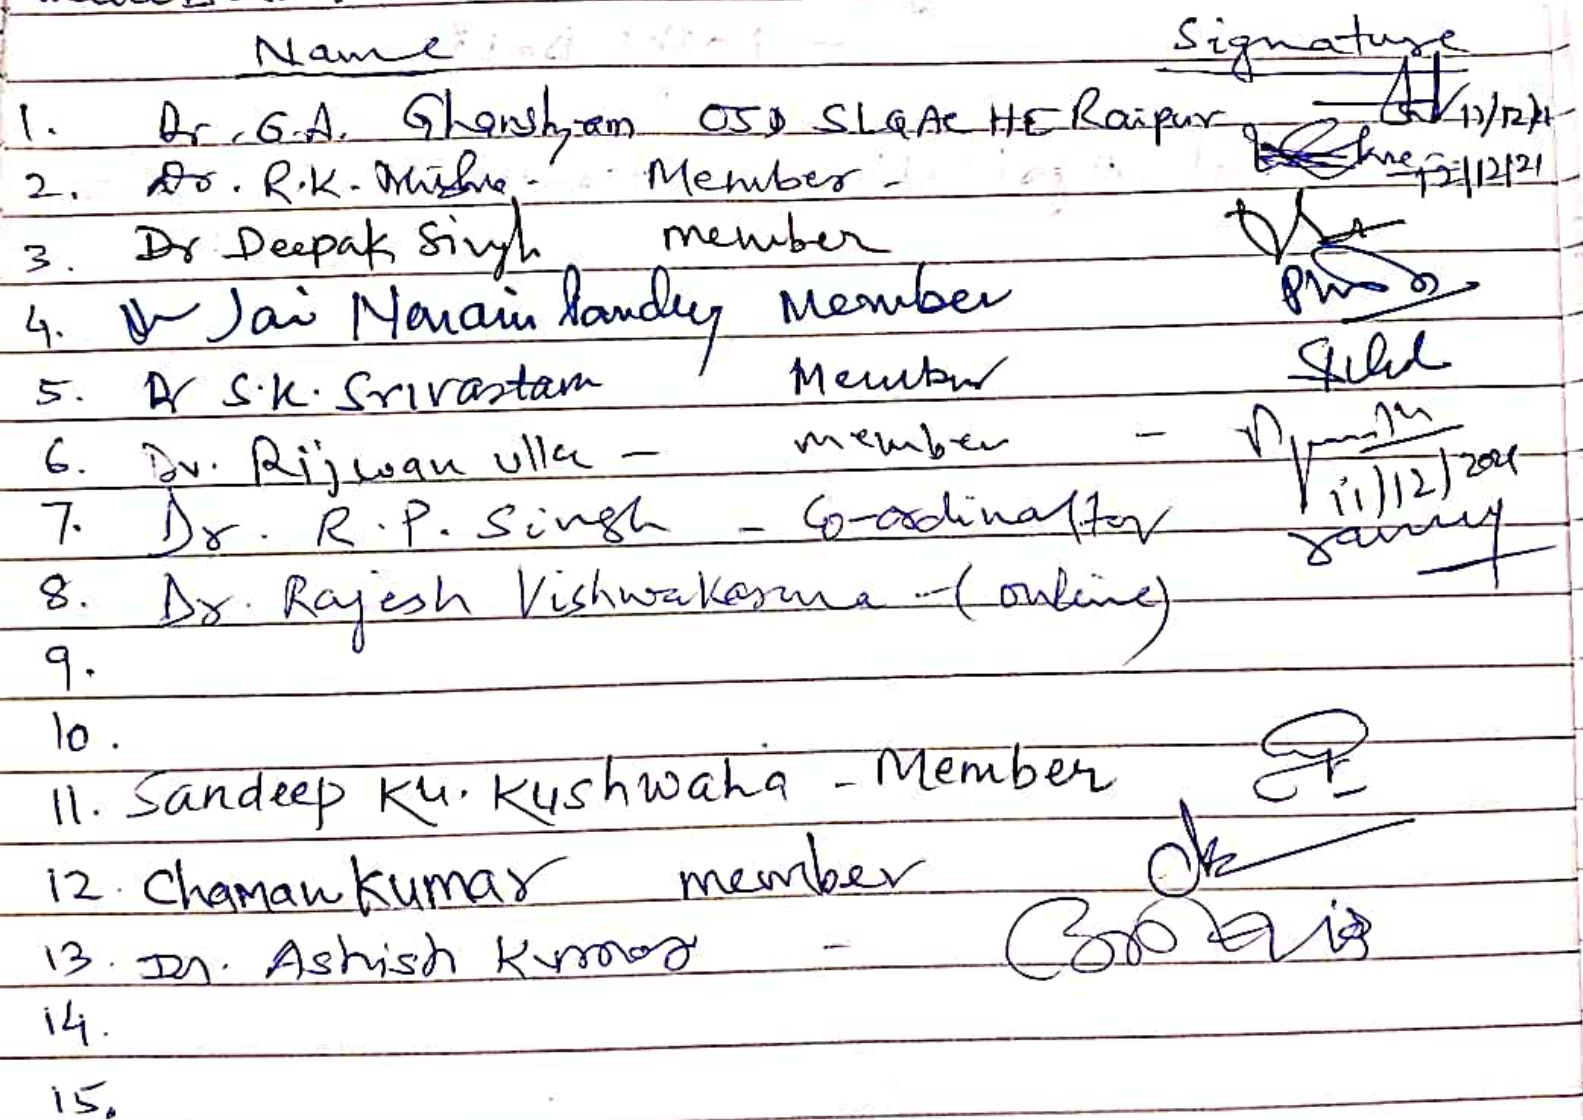 Name Signature
1. Dr. G.A. Ghanshyam OSD SLQAC HE Raipur 11/12/21
2. Dr. R.K. Mishra - Member - 12/12/21
3. Dr Deepak Singh member
4. Dr Jai Narain Pandey Member
5. Dr S.K. Srivastava Member
6. Dr. Rijwan ulla - member - 11/12/2021
7. Dr. R.P. Singh - Co-ordinator
8. Dr. Rajesh Vishwakarma - (online)
9.
10.
11. Sandeep Ku. Kushwaha - Member
12. Chaman Kumar member
13. Dr. Ashish Kumar -
14.
15.